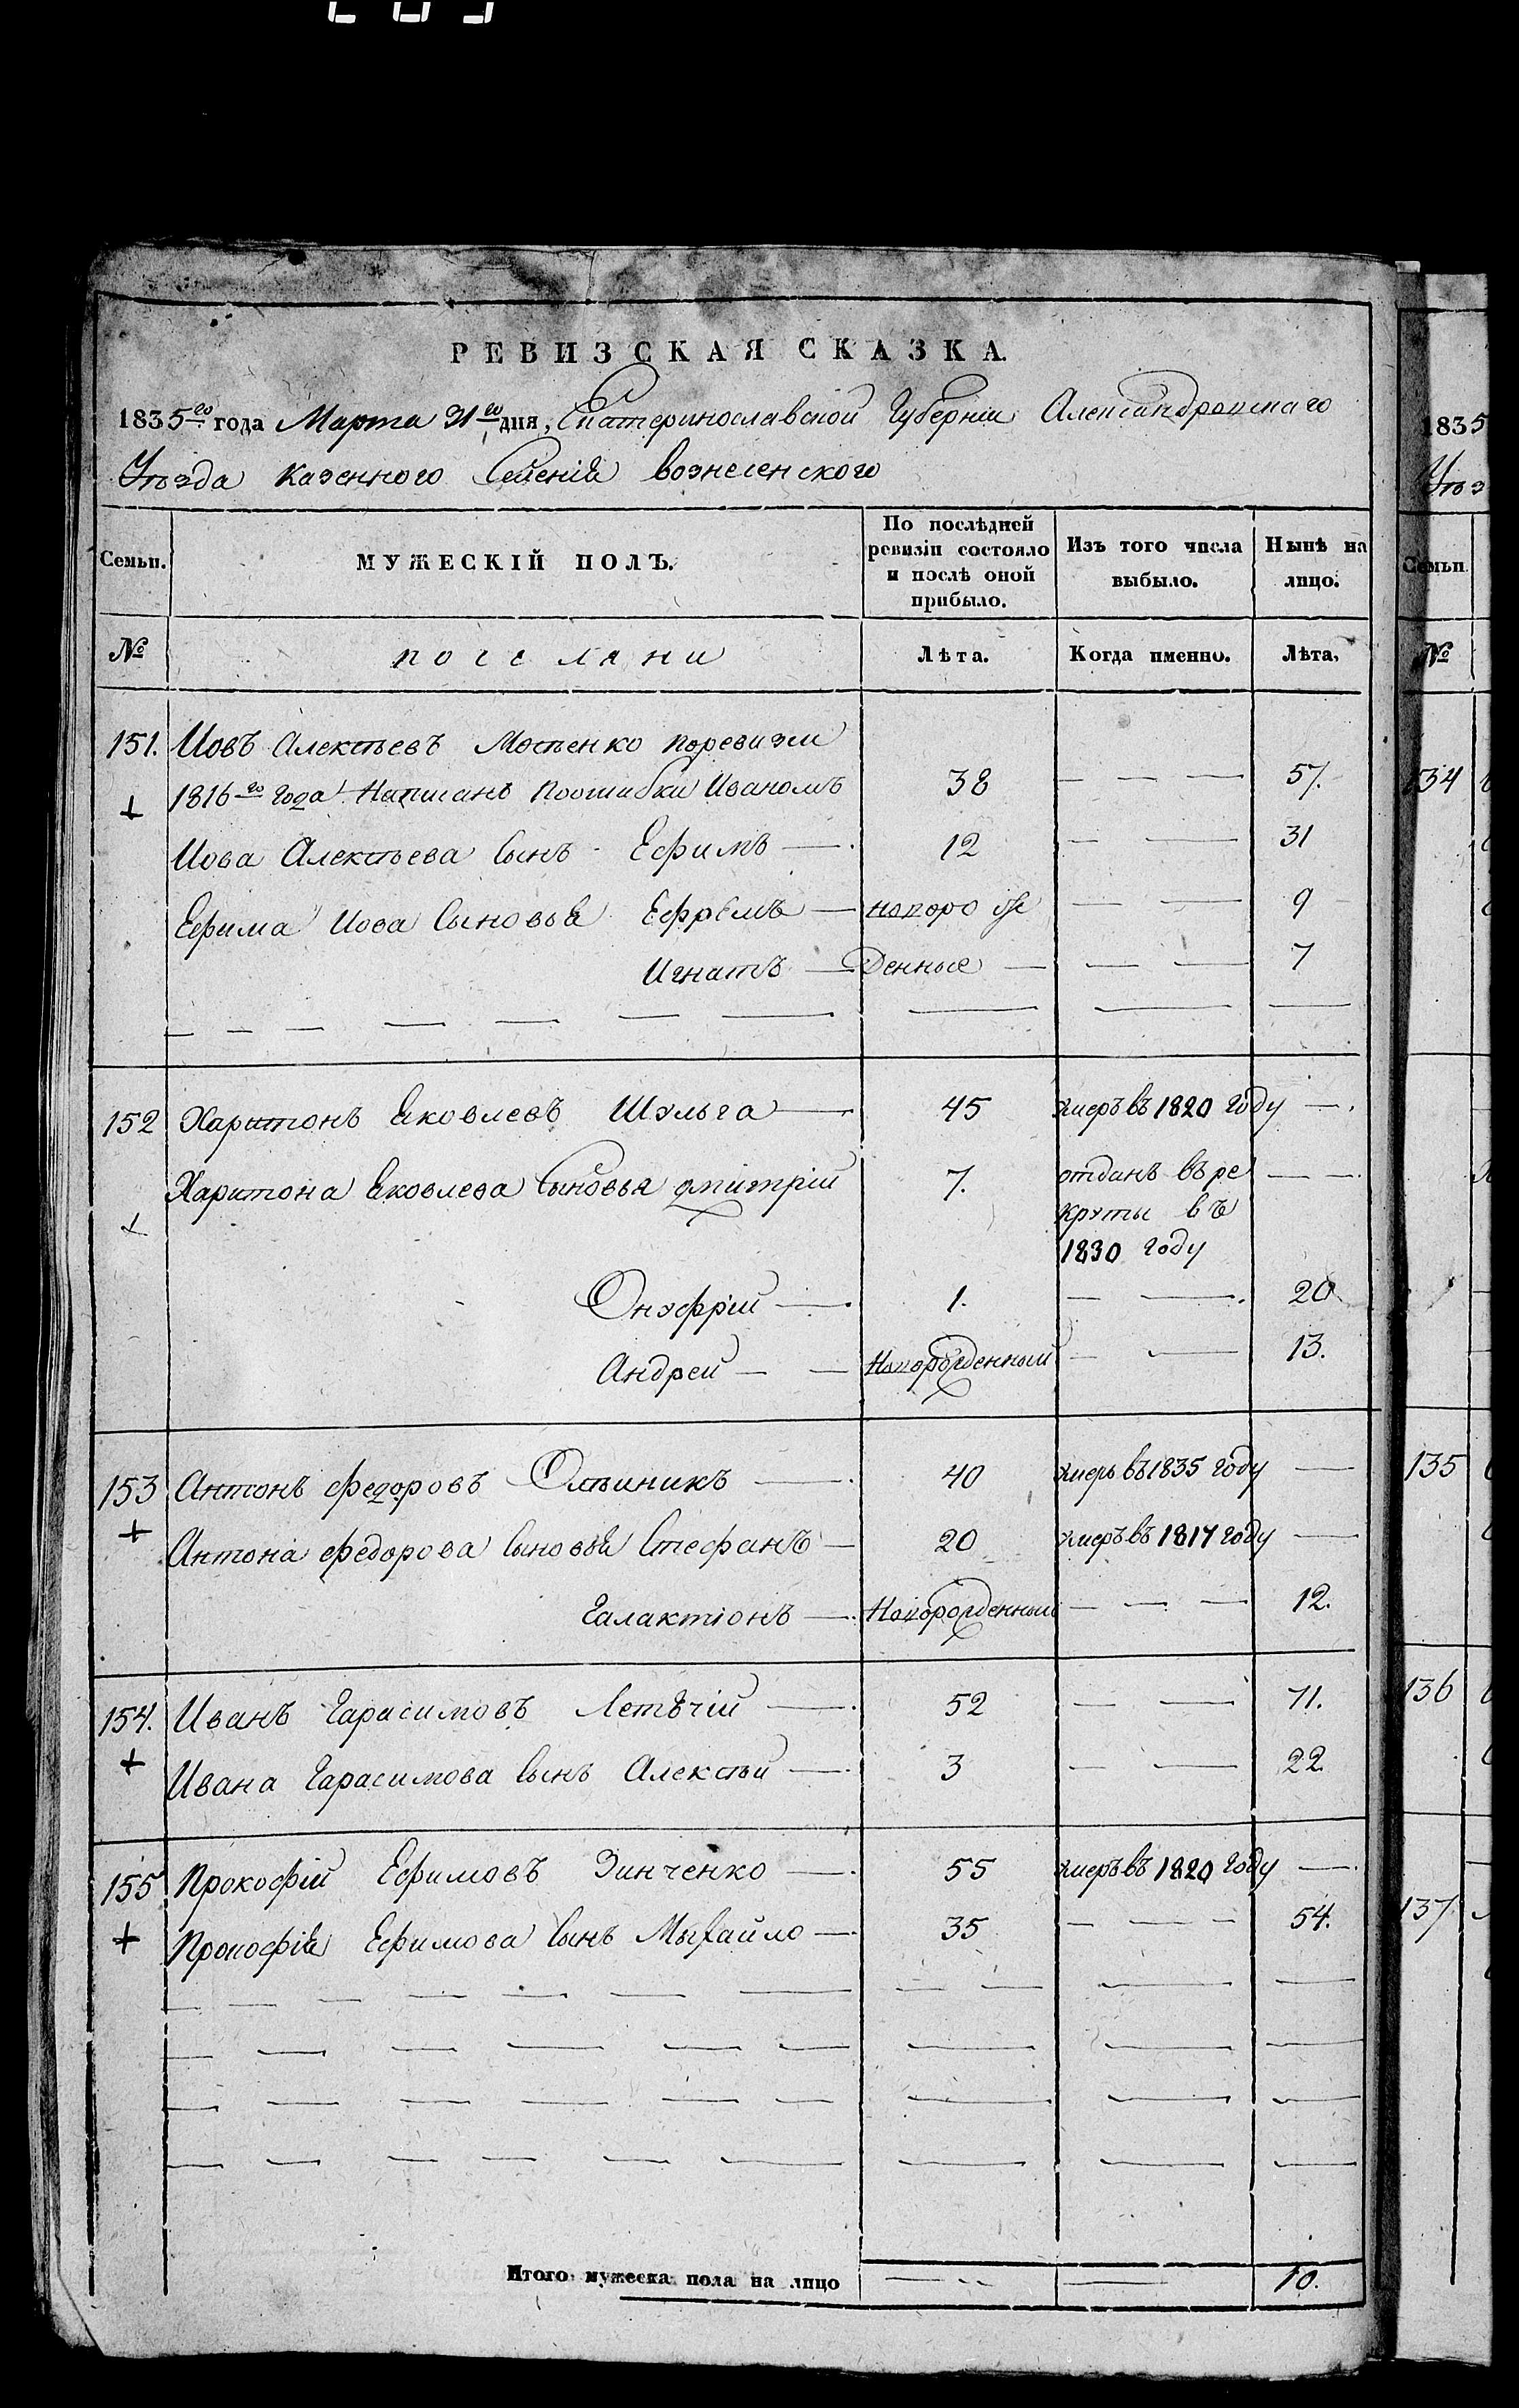 РЕВИЗСКАЯ СКАЗКА.
1835го года Марта 31го дня, Екатеринославской Губерніи Александровскаго
Уѣзда казенного Селенія вознесенского
Семьи. МУЖЕСКІЙ ПОЛЪ. По послѣдней ревизіи состояло и послѣ оной прибыло. Изъ того числа выбыло. Нынѣ на лицо.
№ поселяни Лѣта. Когда именно. Лѣта.
151. Иовъ Алексѣевъ Мосѣенко поревизіи
1816го года Написанъ поошибки Иваномъ 38 — — — 57.
Иова Алексѣева Сынъ Ефимъ — 12 — — 31
Ефима Иова Сыновья Ефремъ — новоро ж — — 9
Игнатъ — Денные — — — 7
152 Харитонъ Яковлевъ Шульга — 45 умеръ въ 1820 году —.
Харитона Яковлева Сыновья дмитрій 7. отданъ въ ре — —
круты въ
1830 году
Онуфрій — 1. — — 20
Андрей — — Новорожденный — — 13.
153 Антонъ Федоровъ Олѣиникъ — 40 умеръ въ 1835 году —
Антона Федорова Сыновья Стефанъ — 20 умеръ въ 1817 году —
Галактіонъ — Новорожденный — — — 12.
154. Иванъ Гарасимовъ Летѣчій — 52 — — 71.
Ивана Гарасимова Сынъ Алексѣй — 3 — — 22.
155 Прокофій Ефимовъ Зинченко — 55 умеръ въ 1820 году —
Прокофія Ефимова Сынъ Мыхайло — 35 — — — 54.
Итого мужеска пола на лицо — — 10.
1835
Уѣз
Семьи
№
134
135
136
137